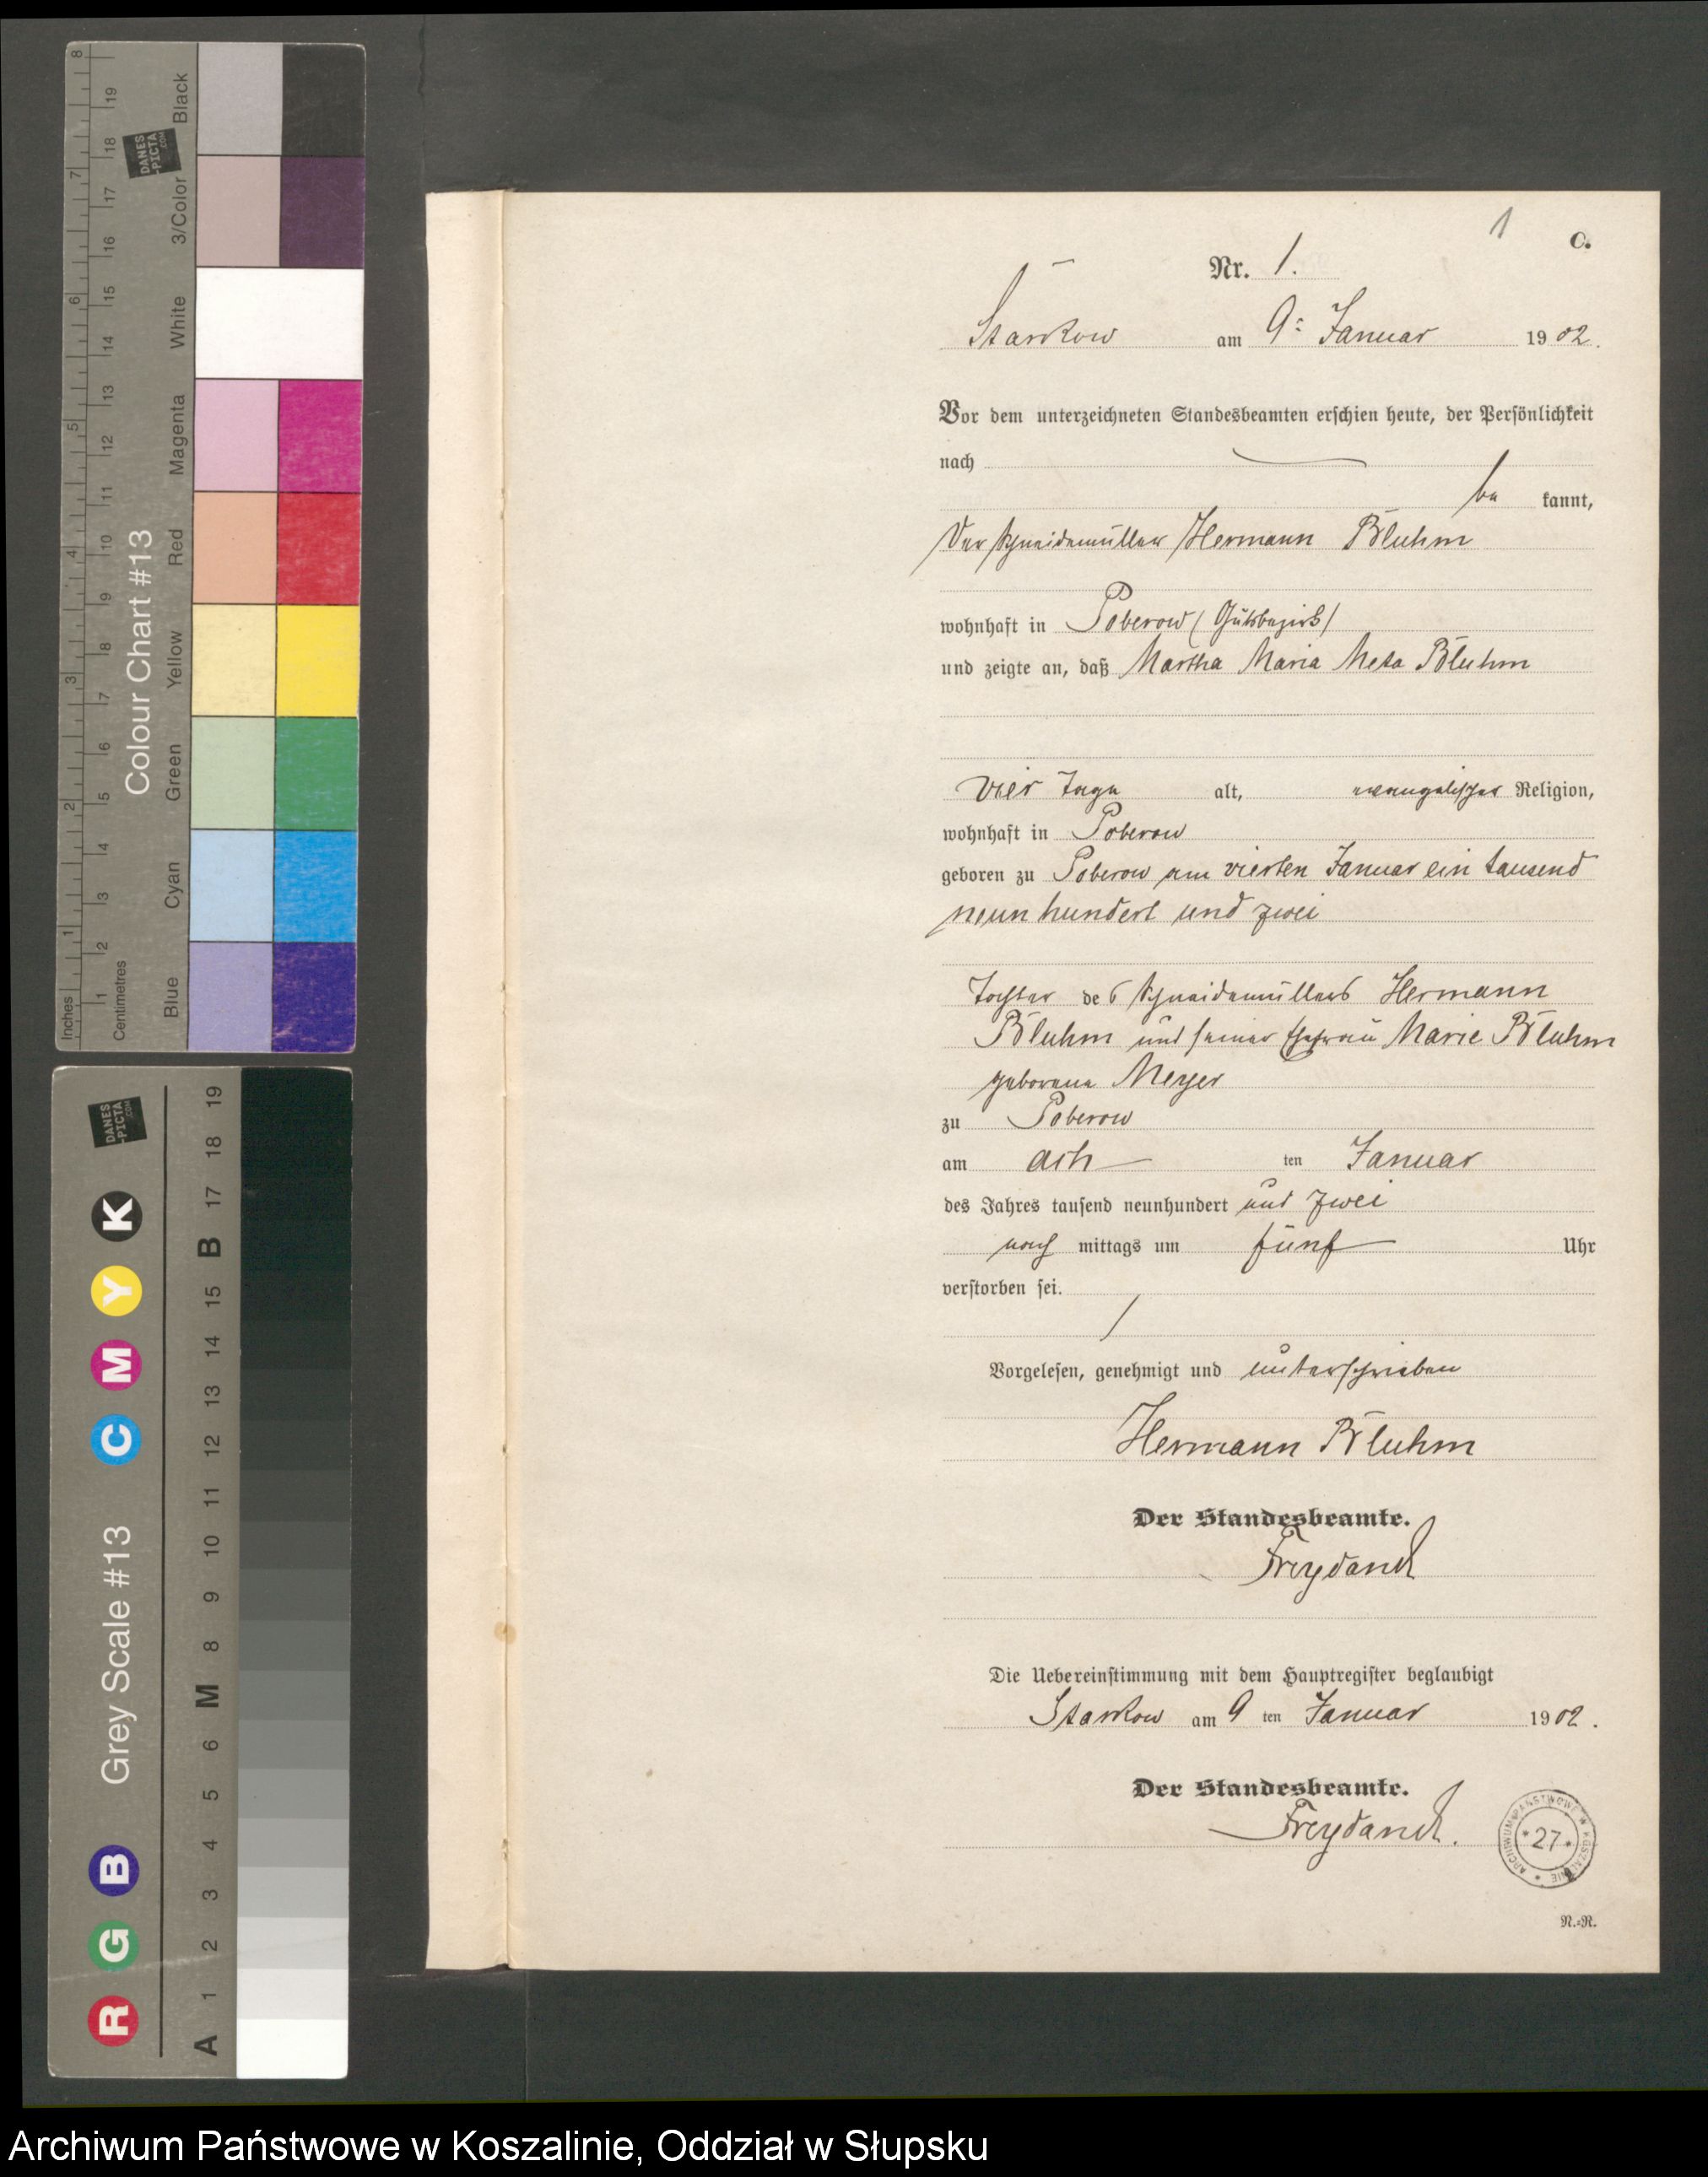 8
7
6
5
4
3
2
1
Inches
19
18
17
16
15
14
13
12
11
10
9
8
7
6
5
4
3
2
1
Centimetres
DANES
-PICTA
.COM
Colour Chart #13
Black
3/Color
White
Magenta
Red
Yellow
Green
Cyan
Blue
DANES
-PICTA
.COM
K
Y
M
C
Grey Scale #13
B
G
R
19
18
17
B
15
14
13
12
11
10
9
8
M
6
5
4
3
2
1
A
1
C.
Nr. 1.
Starkow am 9. Januar 1902.
Vor dem unterzeichneten Standesbeamten erschien heute, der Persönlichkeit
nach
be kannt,
der Schneidemüller Hermann Bluhm
wohnhaft in Poberow (Gutsbezirk)
und zeigte an, daß Martha Maria Meta Bluhm
vier Tage alt, evangelischer Religion,
wohnhaft in Poberow
geboren zu Poberow am vierten Januar ein tausend
neun hundert und zwei
Tochter des Schneidemüllers Hermann
Bluhm und seiner Ehefrau Marie Bluhm
geborene Meyer
zu Poberow
am ach ten Januar
des Jahres tausend neunhundert und zwei
nach mittags um fünf Uhr
verstorben sei.
Vorgelesen, genehmigt und unterschrieben
Hermann Bluhm
Der Standesbeamte.
Freydanck
Die Uebereinstimmung mit dem Hauptregister beglaubigt
Starkow am 9 ten Januar 1902.
Der Standesbeamte.
Freydanck.
ARCHIWUM PAŃSTWOWE W KOSZALINIE
*27*
N.=R.
Archiwum Państwowe w Koszalinie, Oddział w Słupsku